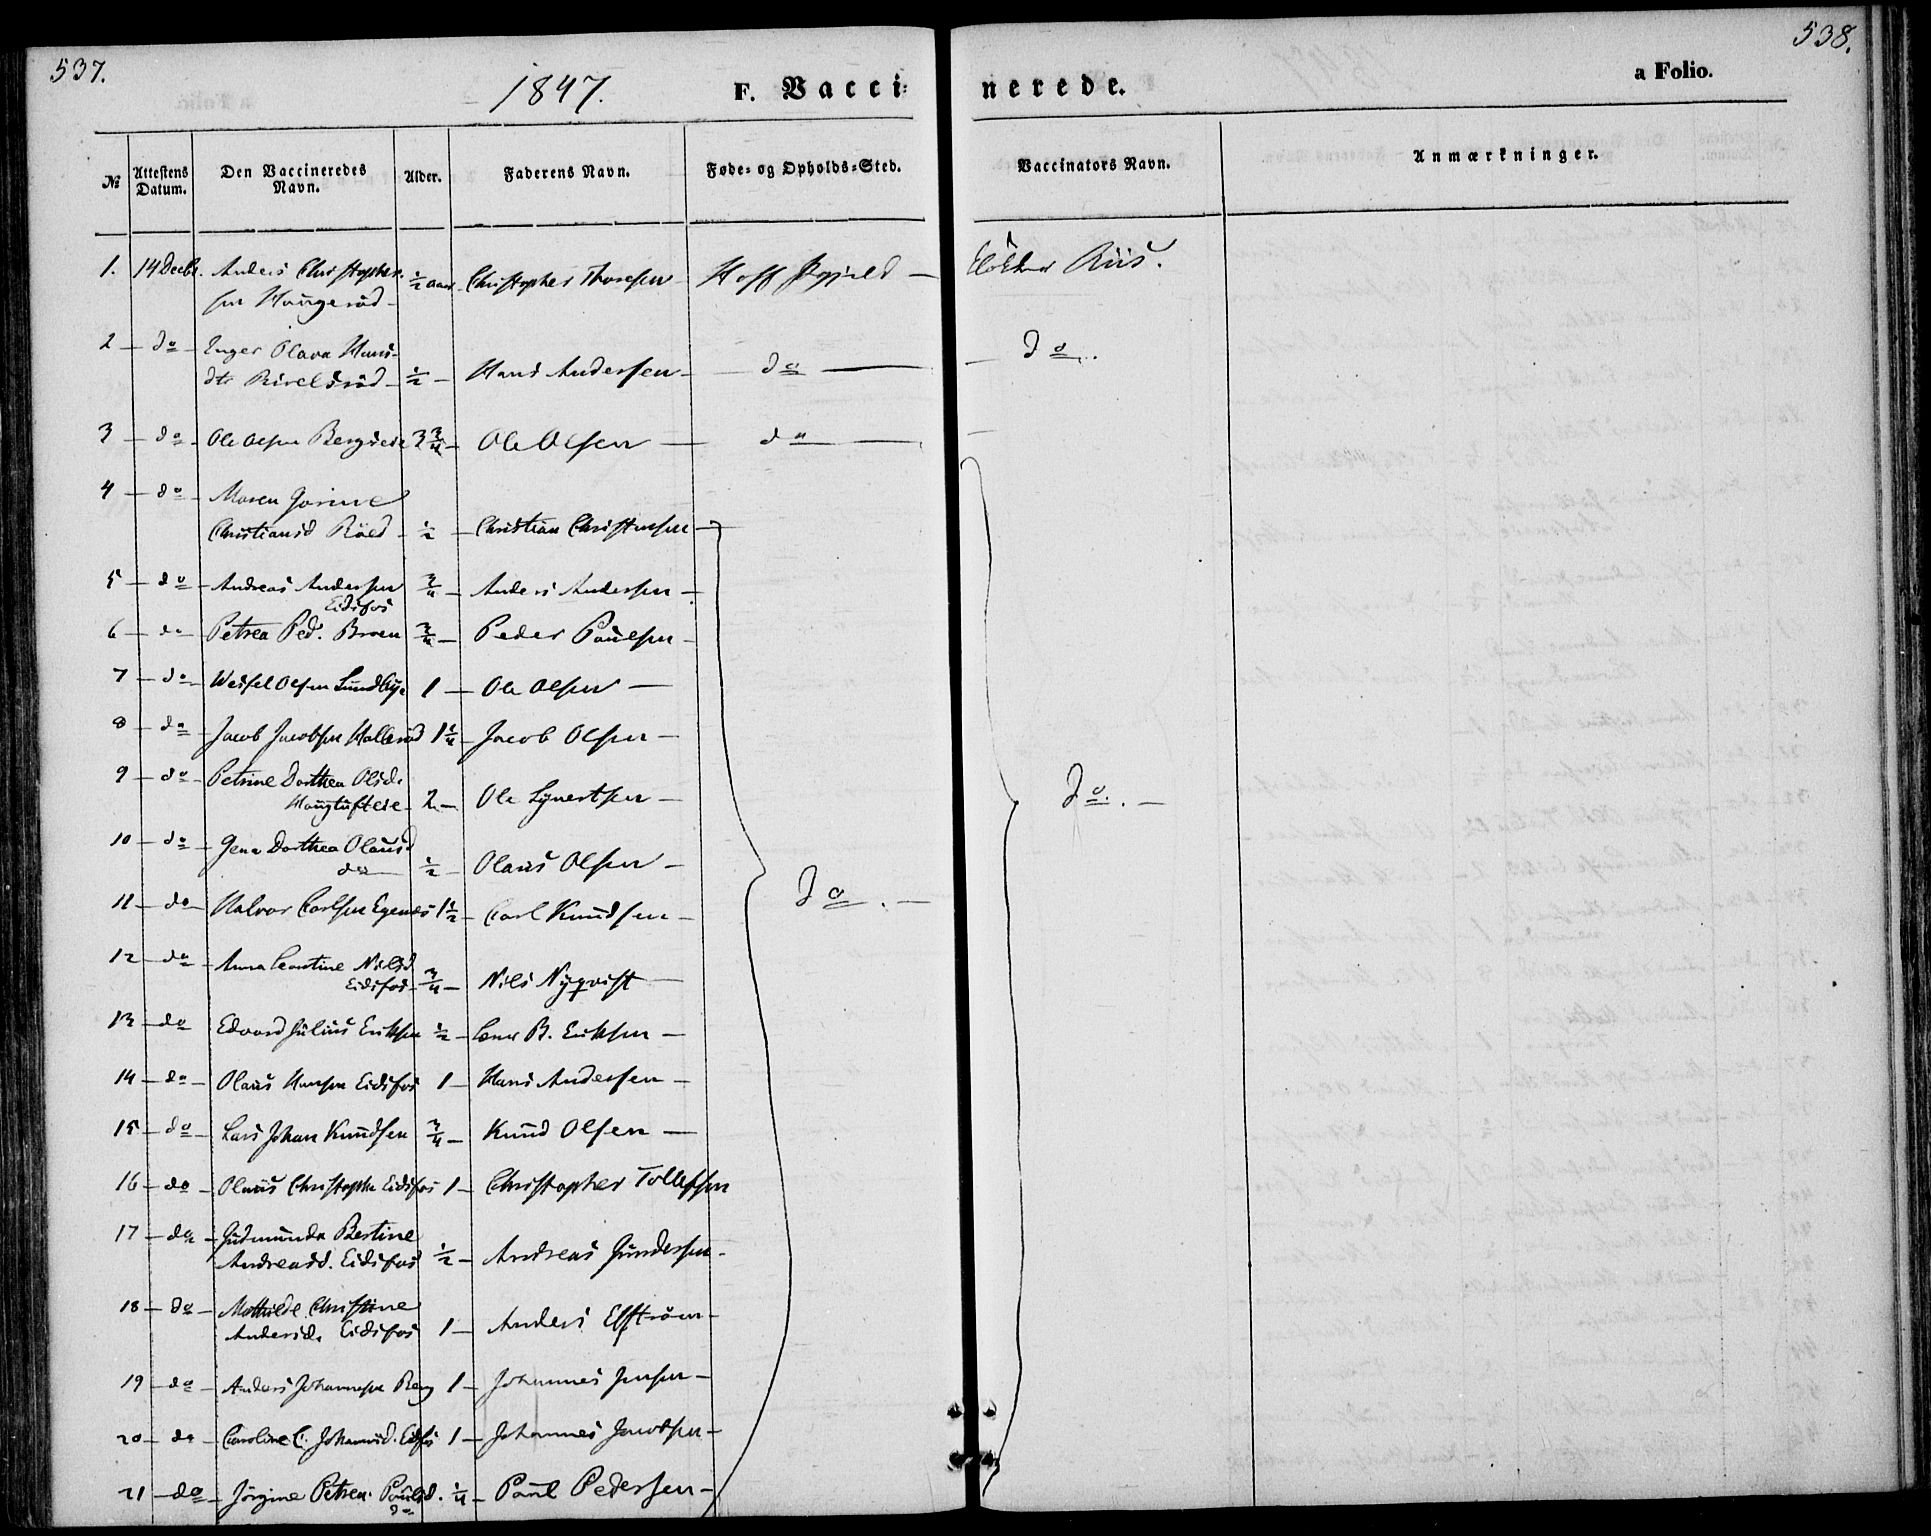 537.
538.
1847.
F. Vacci-
nerede.
a Folio.
№
Attestens Datum.
Den Vaccineredes Navn.
Alder.
Faderens Navn.
Føde- og Opholds-Sted.
Vaccinators Navn.
Anmærkninger.
1. 14 Decbr. Anders Christopher- ½ aar Christopher Thoresen Hoff Riis.
sen Haugeröd
2 do Inger Olava Hans-
dtr ½ Hans Andersen do do.
3 do Ole Olsen 3¾ Ole Olsen do
4 do Maren
Christiansd Röed ½ Christian Christensen
5 do Andreas Andersen ¾ Anders Andersen
Eidsfos
6 do Petrea Ped. Broen ¾ Peder Paulsen
7 do Olsen Lundbye 1 Ole Olsen
8 do Jacob Jacobsen Halleröd 1¼ Jacob Olsen
9 do Petrine Dorthea Olsd.
2 Ole do.
10 do Dorthea Olausd
do ½ Olaus Olsen
11 do Halvor Carlsen Egenes 1½ Carl Knudsen do.
12 do Anna Leontine Nilsd
Eidsfos ¾ Nils Nyqvist
13 do Edvard Julius Eriksen ½ B. Eriksen
14 do Olaus Hansen Eidsfos 1 Hans Andersen
15 do Lars Johan Knudsen ¾ Knud Olsen
16 do Olaus Christophe Eidsfos 1 Christopher Tollefsen
17 do Gudmunda Bertine
Andreasd. Eidsfos ½ Andreas Gundersen
18 do Mathilde Christine
Andersd. Eidsfos 1 Anders Elfström
19 do Anders Johannesen Berg 1 Johannes Jensen
20 do Caroline C. Johannsd. Eidsfos 1 Johannes Jacobsen
21 do Jörgine Petrea Paulsd. ¼ Paul Pedersen
do